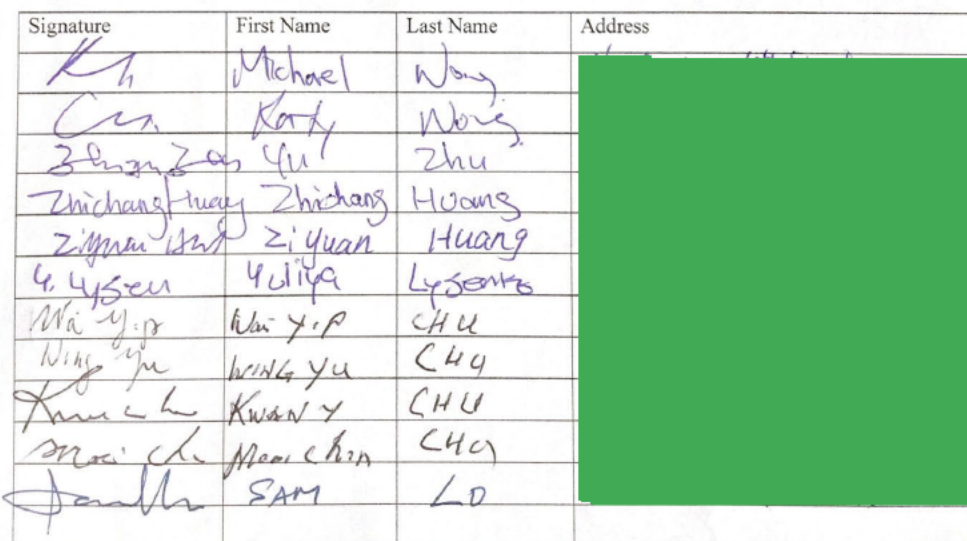 Signature First Name Last Name Address
Michael Wong
Wong
Yu Zhu
Zhichang Huang Zhichang Huang
Ziyuan Ziyuan Huang
Y. Lysen Yuliya Lysenko
Wai Yip Wai Yip CHU
Wing Yu WING YU CHU
KWAN Y CHU
CHU
SAM LO